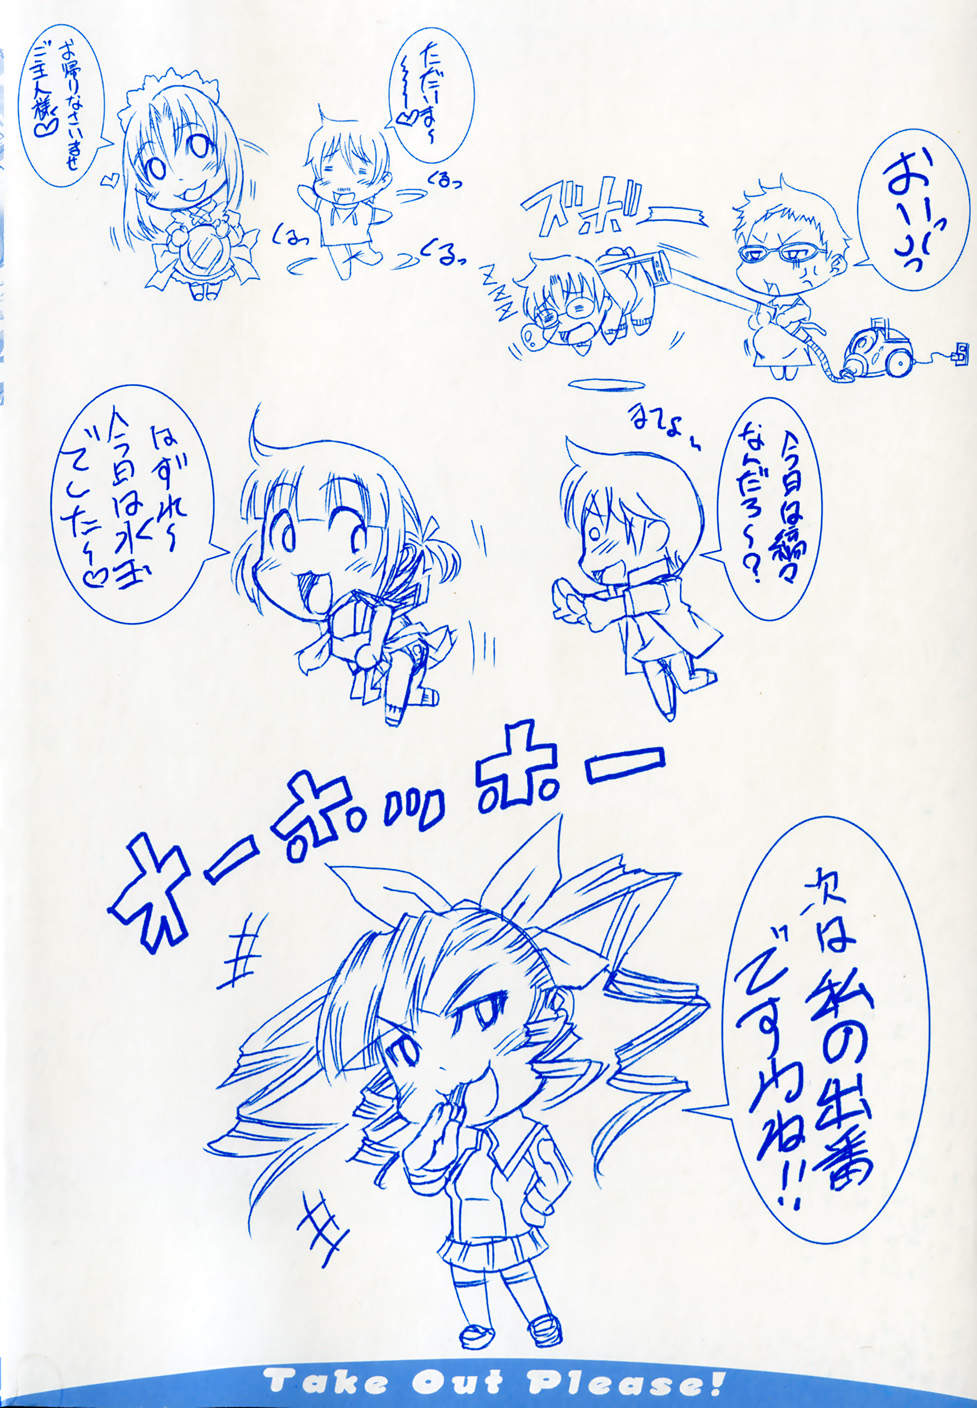 ただいま〜
〜〜〜♡
お帰りなさいませ
ご主人様♡
くるっ
くるっ
くるっ
おいっ
ズボー
ZZZ
今日は縞々
なんだろ〜?
まてよぃ
はずれ〜
今日は水玉
でした〜♡
オーホッホー
次は私の出番
ですわね!!
Take Out Please!